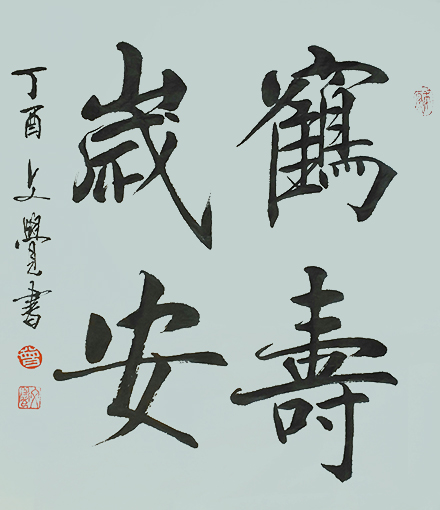 鶴壽
嵗安
丁酉文覺書